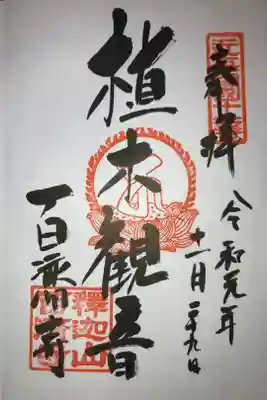 奉拝
令和元年
十一月二十九日
植木観音
百濟寺
釋迦山
百濟寺